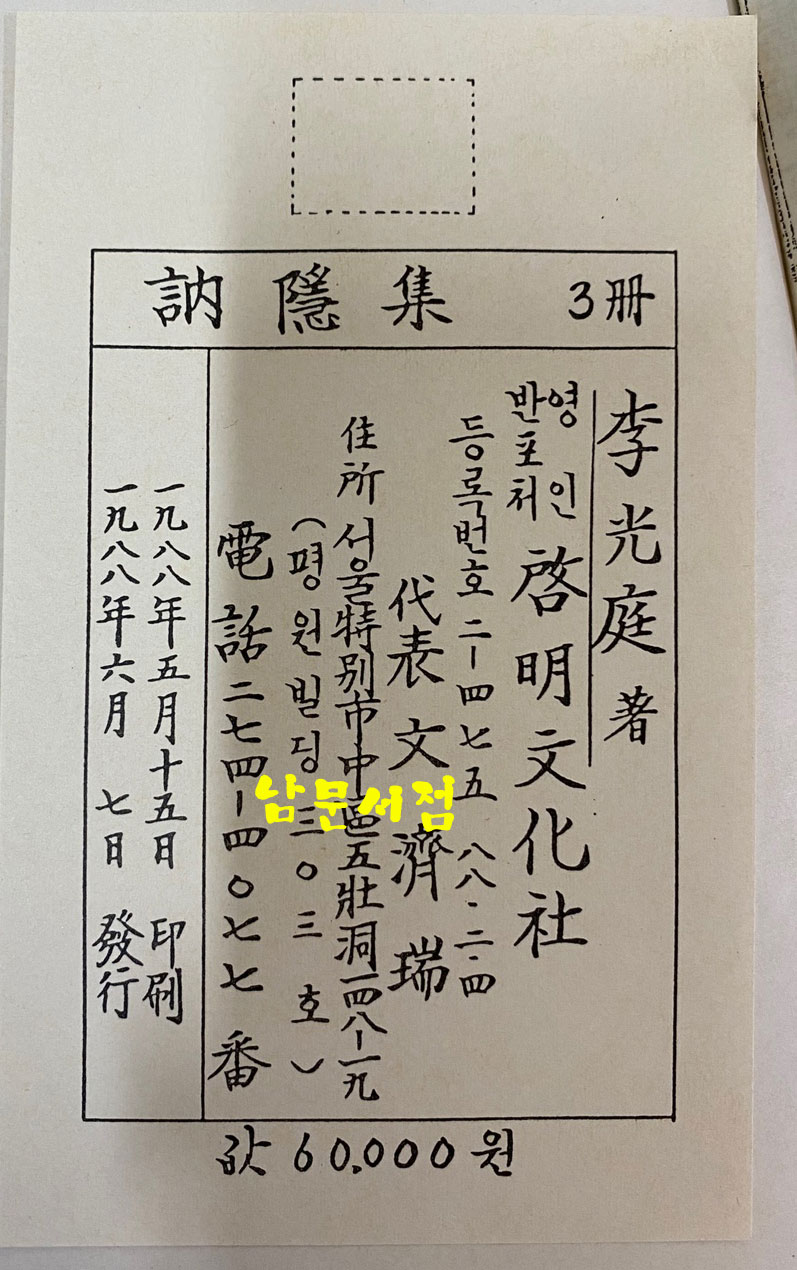 訥隱集 3冊
李光庭 著
영인
반포처
啓明文化社
등록번호 二-四七五 八八·二·四
代表 文濟瑞
住所 서울特別市中區五壯洞一四八-一九
(평원빌딩 三○三호)
電話 二七四-四○七七番
一九八八年 五月 十五日 印刷
一九八八年 六月 七日 發行
값 60,000원
남문서점